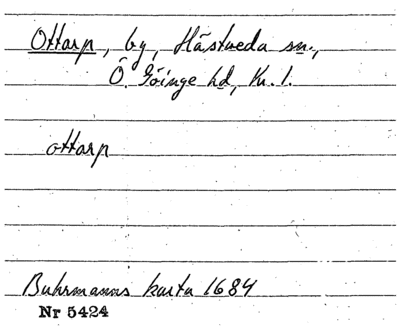 Ottarp, by, Hästveda sn.,
Ö. Göinge hd, Kr. l.
ottarp
Buhrmanns karta 1684
Nr 5424